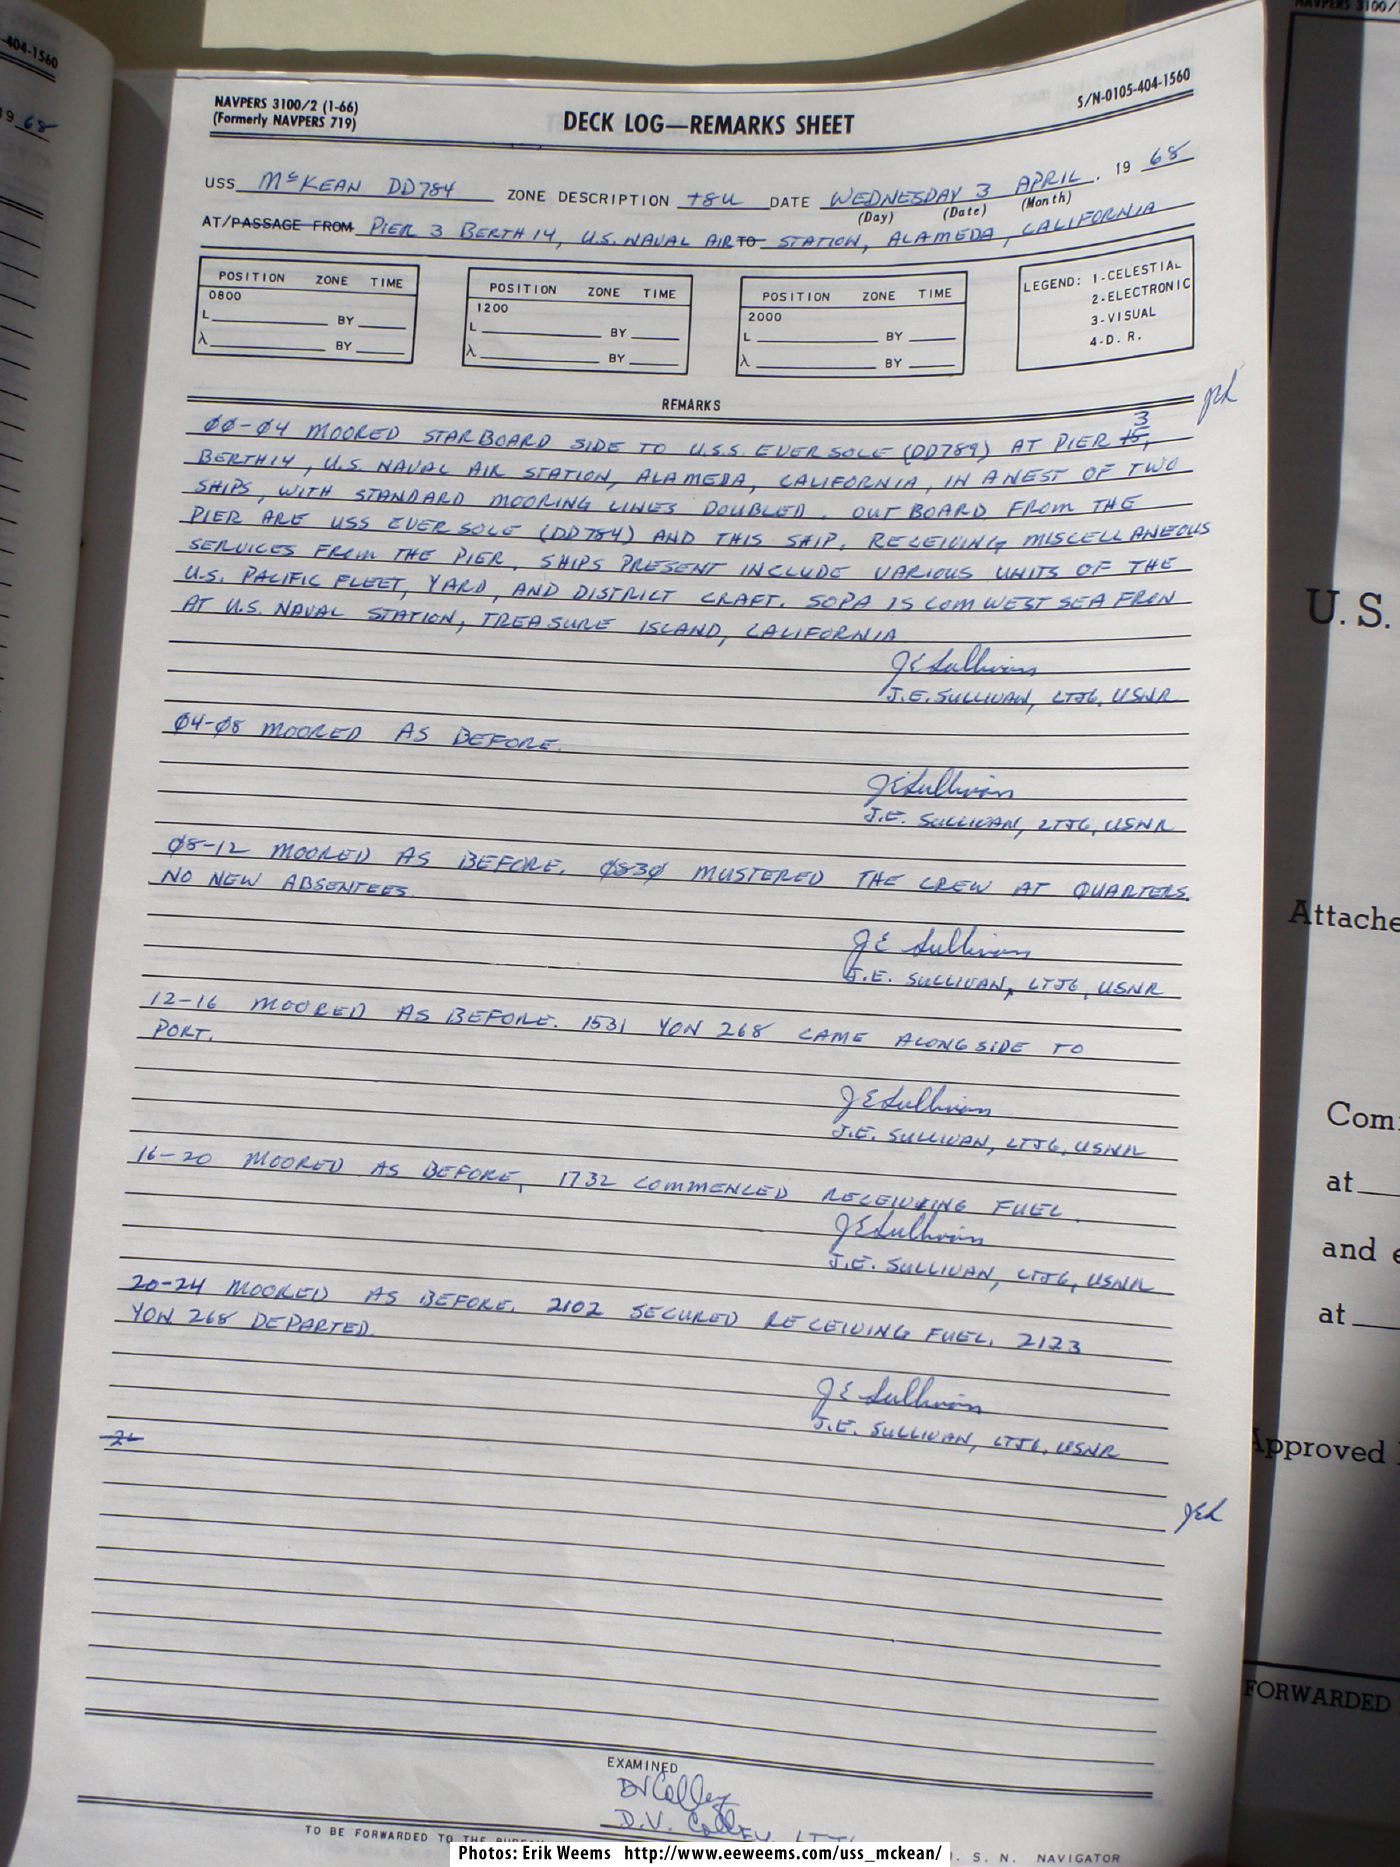 404-1560
19 68
NAVPERS 3100/
NAVPERS 3100/2 (1-66)
(Formerly NAVPERS 719)
DECK LOG—REMARKS SHEET
S/N-0105-404-1560
USS McKEAN DD784 ZONE DESCRIPTION +8U DATE WEDNESDAY 3 APRIL. 19 68
(Day) (Date) (Month)
AT/PASSAGE FROM PIER 3 BERTH 14, U.S. NAVAL AIR TO STATION, ALAMEDA, CALIFORNIA
POSITION ZONE TIME
0800
L BY
λ BY
POSITION ZONE TIME
1200
L BY
λ BY
POSITION ZONE TIME
2000
L BY
λ BY
LEGEND: 1-CELESTIAL
2-ELECTRONIC
3-VISUAL
4-D. R.
REMARKS
3
00-04 MOORED STARBOARD SIDE TO U.S.S. EVERSOLE (DD789) AT PIER 15,
BERTH 14, U.S. NAVAL AIR STATION, ALAMEDA, CALIFORNIA, IN A NEST OF TWO
SHIPS, WITH STANDARD MOORING LINES DOUBLED. OUTBOARD FROM THE
PIER ARE USS EVERSOLE (DD784) AND THIS SHIP. RECEIVING MISCELLANEOUS
SERVICES FROM THE PIER. SHIPS PRESENT INCLUDE VARIOUS UNITS OF THE
U.S. PACIFIC FLEET, YARD, AND DISTRICT CRAFT. SOPA IS COMWESTSEAFRON
AT U.S. NAVAL STATION, TREASURE ISLAND, CALIFORNIA
JE Sullivan
J.E. SULLIVAN, LTJG, USNR
04-08 MOORED AS BEFORE.
JE Sullivan
J.E. SULLIVAN, LTJG, USNR
08-12 MOORED AS BEFORE. 0830 MUSTERED THE CREW AT QUARTERS.
NO NEW ABSENTEES.
JE Sullivan
J.E. SULLIVAN, LTJG, USNR
12-16 MOORED AS BEFORE. 1531 YON 268 CAME ALONGSIDE TO
PORT.
JE Sullivan
J.E. SULLIVAN, LTJG, USNR
16-20 MOORED AS BEFORE, 1732 COMMENCED RECEIVING FUEL.
JE Sullivan
J.E. SULLIVAN, LTJG, USNR
20-24 MOORED AS BEFORE. 2102 SECURED RECEIVING FUEL. 2123
YON 268 DEPARTED.
JE Sullivan
J.E. SULLIVAN, LTJG, USNR
EXAMINED
DV Colley
D.V. Colley, LTJG
TO BE FORWARDED TO THE
. S. N. NAVIGATOR
U.S.
Attache
Com
at
and e
at
Approved
FORWARDED
Photos: Erik Weems http://www.eeweems.com/uss_mckean/